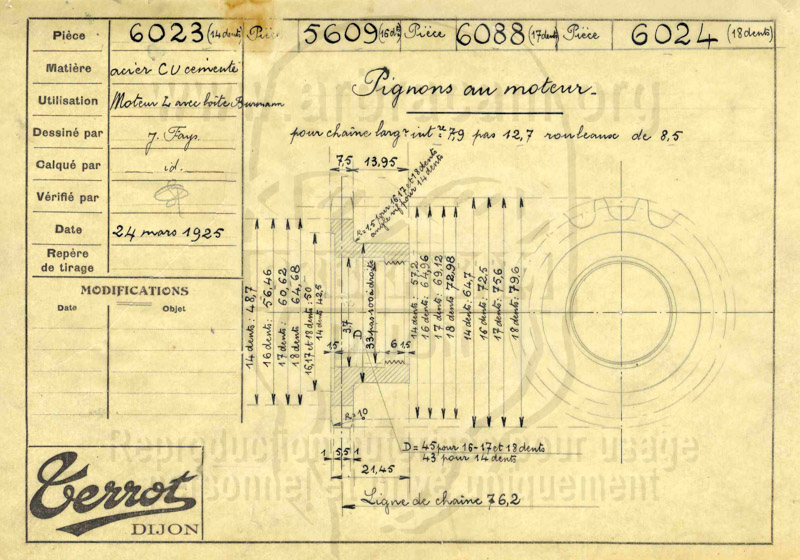 Pièce 6023 (14 dents) Pièce 5609 (16 dts) Pièce 6088 (17 dents) Pièce 6024 (18 dents)
Matière acier CV cementé
Utilisation Moteur L avec boîte Burmann
Dessiné par J. Fays.
Calqué par id.
Vérifié par
Date 24 mars 1925
Repère
de tirage
MODIFICATIONS
Date Objet
Pignons au moteur_
pour chaîne largr intre 7,9 pas 12,7 rouleaux de 8,5
7,5 13,95
14 dents : 48,7
16 dents : 56,46
17 dents : 60,62
18 dents : 64,68
16,17 et 18 dents : 50
14 dents 42,5
37
D
33 pas 100 à droite
14 dents : 57,2
16 dents : 64,96
17 dents : 69,12
18 dents 72,98
14 dents : 64,7
16 dents : 72,5
17 dents : 75,6
18 dents : 79,6
1,5 6 1,5
R=10
D = 45 pour 16-17 et 18 dents
43 pour 14 dents
1 5,5 1
21,45
Ligne de chaîne 76,2
Terrot
DIJON